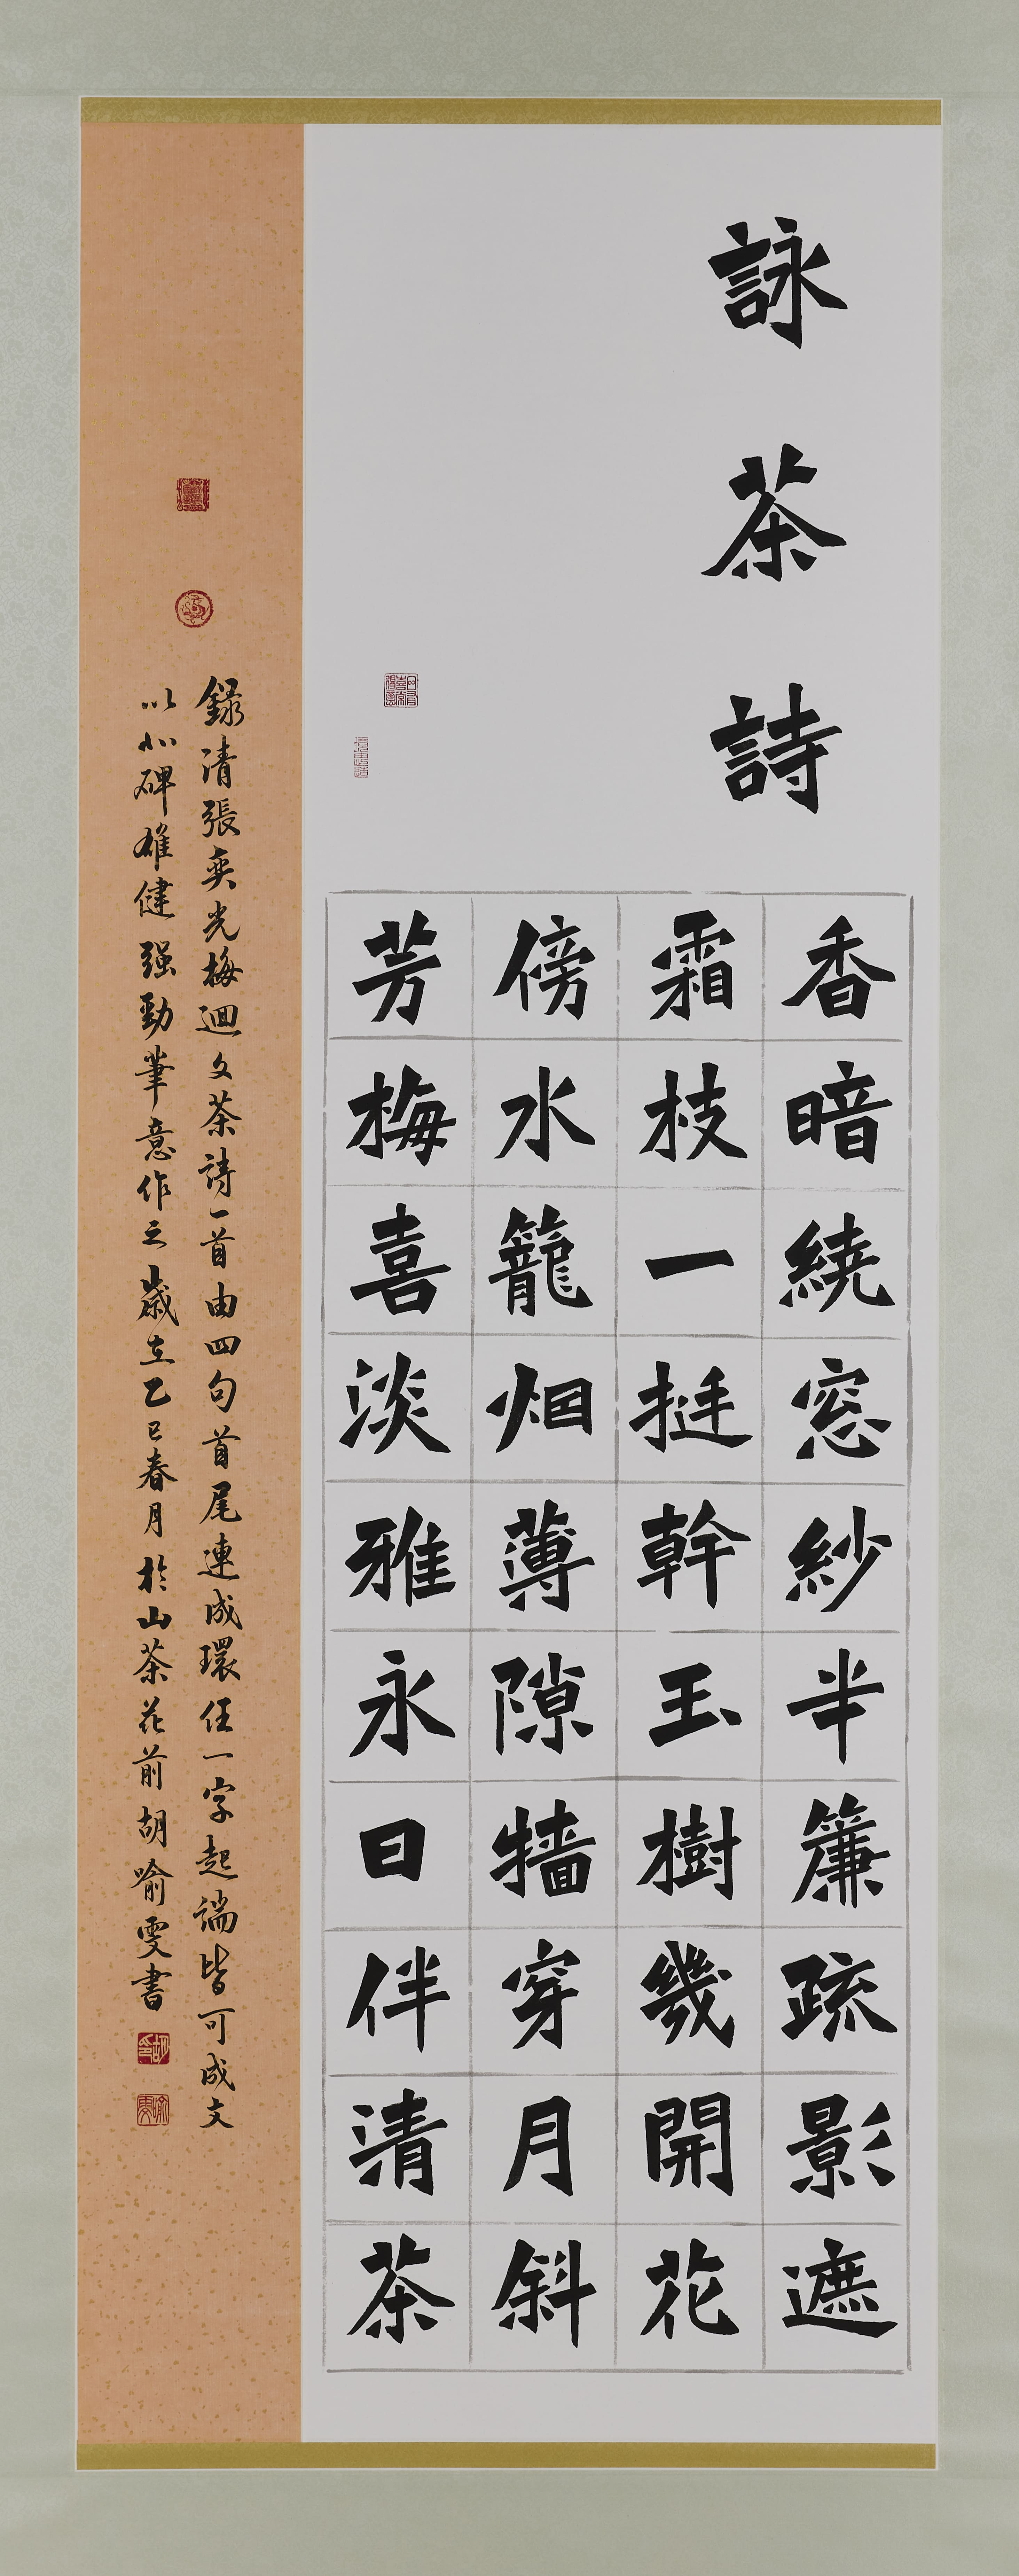 詠茶詩
香暗繞窓紗半簾疏影遮
霜枝一挺幹玉樹幾開花
傍水籠烟薄隙牆穿月斜
芳梅喜淡雅永日伴清茶
錄清張奕光梅迴文茶詩一首由四句首尾連成環任一字起端皆可成文
以北碑雄健强勁筆意作之歲在乙巳春月於山茶花前胡喻雯書